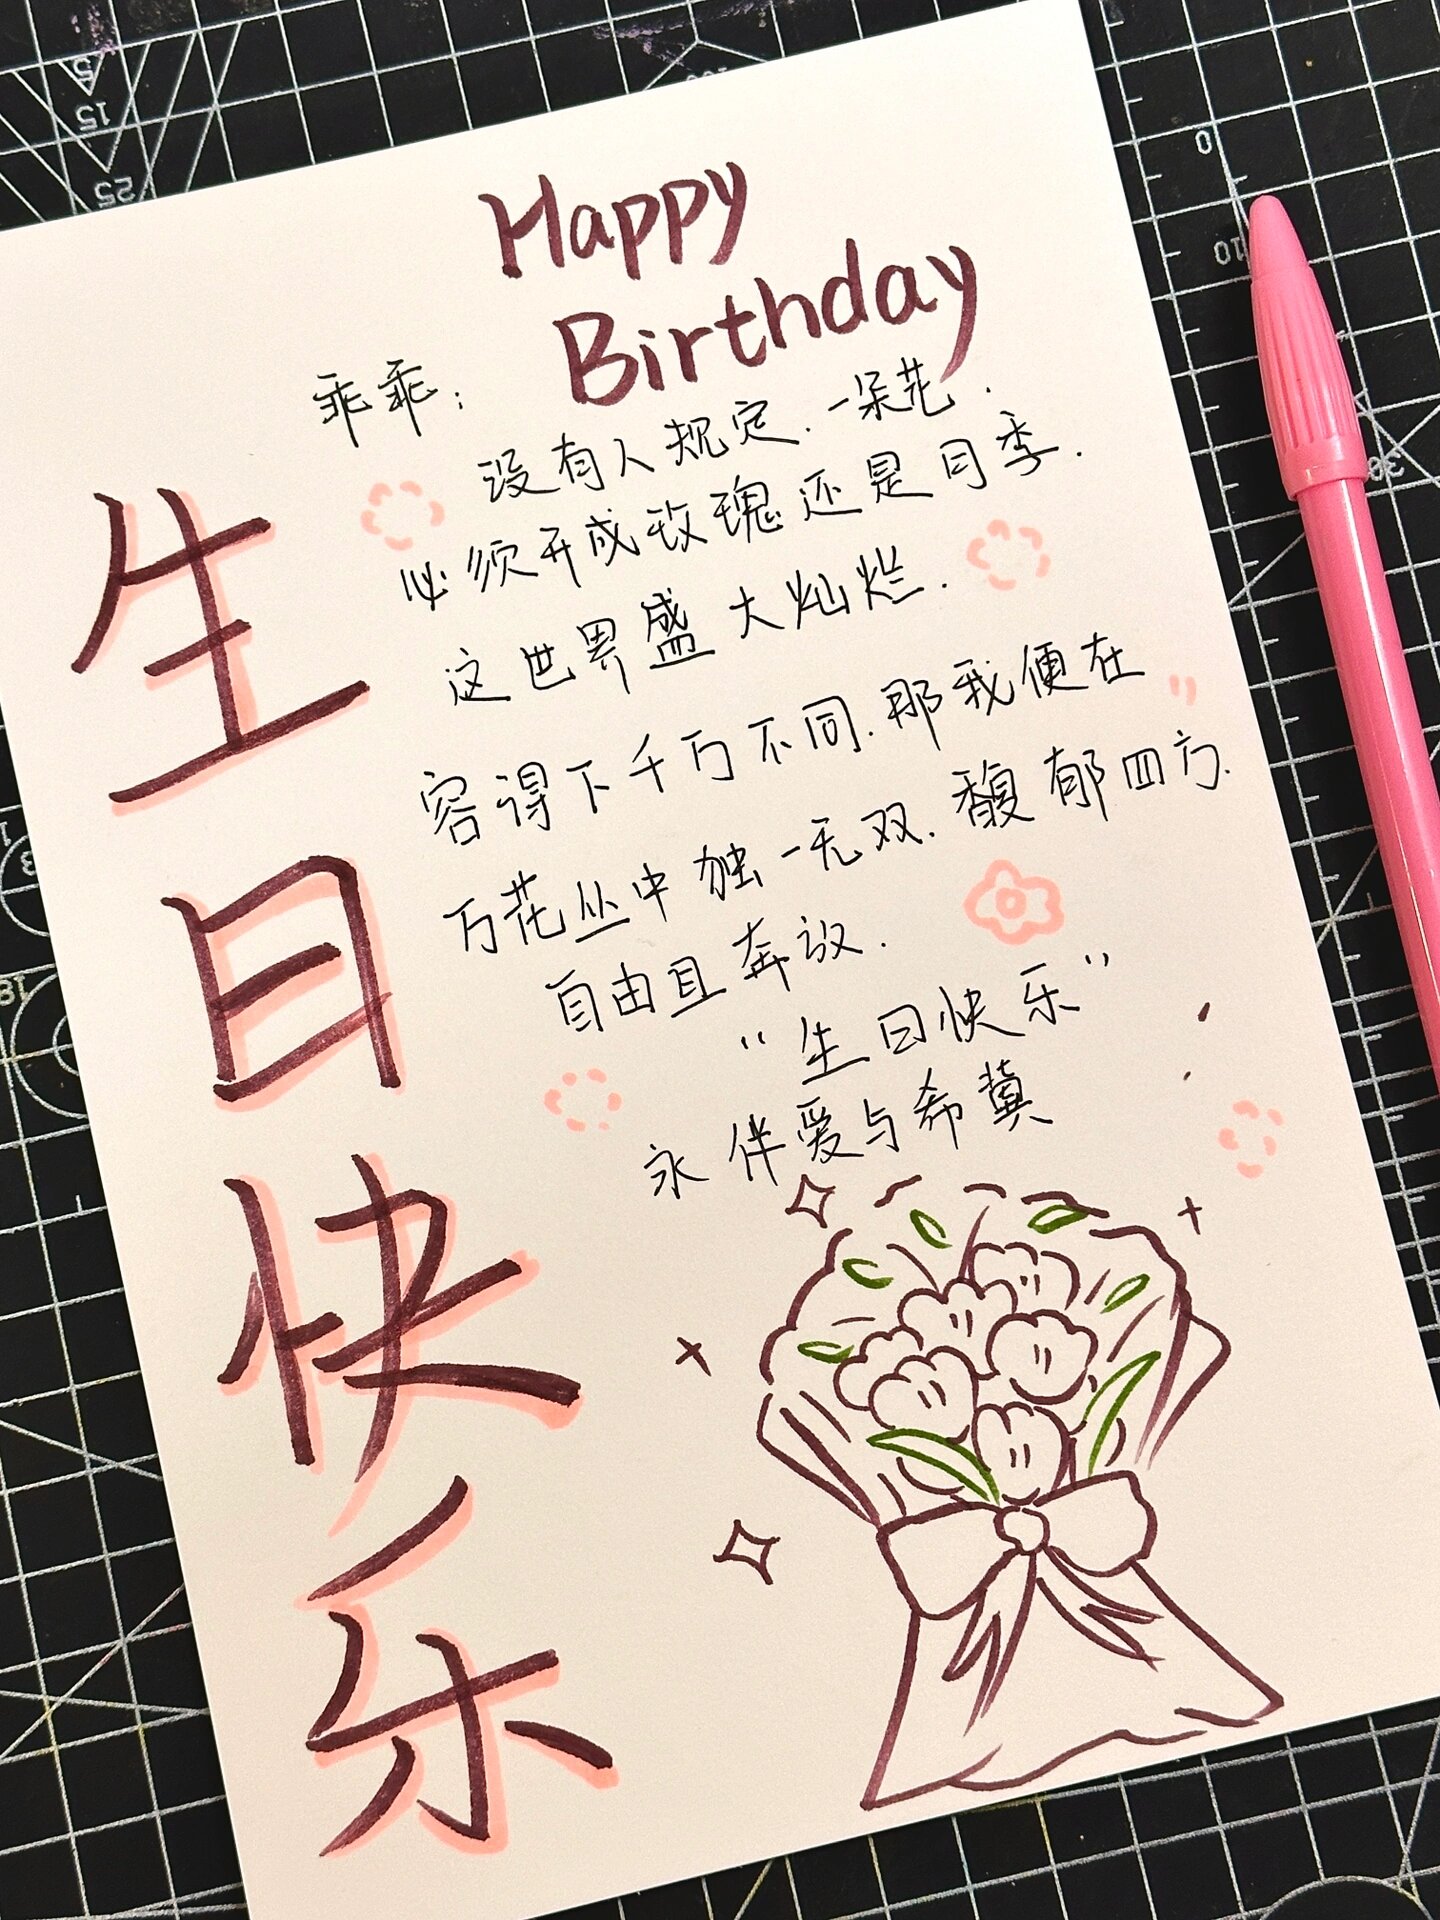 Happy
Birthday
乖乖:
没有人规定.一朵花.
必须开成玫瑰还是月季.
这世界盛大灿烂.
容得下千万不同.那我便在
万花丛中独一无双.馥郁四方.
自由且奔放.
"生日快乐"
永伴爱与希冀
生
日
快
乐
5
15
25
0
10
30